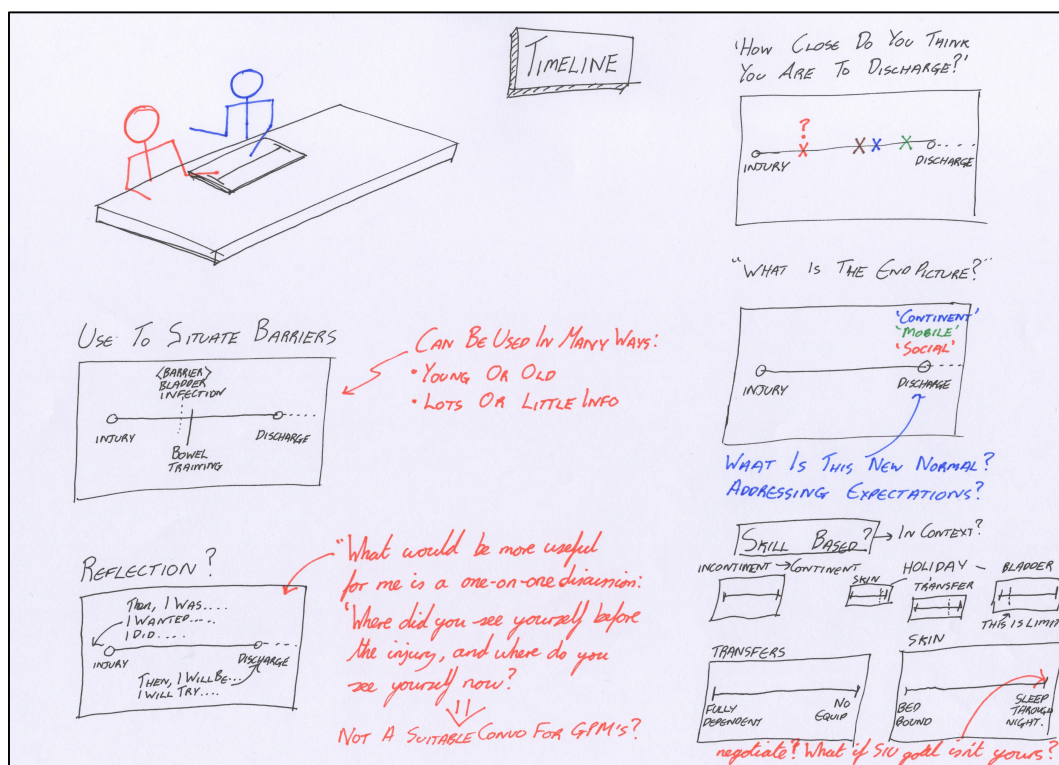 TIMELINE
'HOW CLOSE DO YOU THINK
YOU ARE TO DISCHARGE?'
?
INJURY
DISCHARGE
"WHAT IS THE END PICTURE?"
'CONTINENT'
'MOBILE'
'SOCIAL'
INJURY
DISCHARGE
WHAT IS THIS NEW NORMAL?
ADDRESSING EXPECTATIONS?
USE TO SITUATE BARRIERS
<BARRIER>
BLADDER
INFECTION
INJURY
DISCHARGE
BOWEL
TRAINING
CAN BE USED IN MANY WAYS:
• YOUNG OR OLD
• LOTS OR LITTLE INFO
REFLECTION?
THEN, I WAS....
I WANTED.....
I DID.....
INJURY
DISCHARGE
THEN, I WILL BE...
I WILL TRY....
"What would be more useful
for me is a one-on-one discussion:
'Where did you see yourself before
the injury, and where do you
see yourself now?
NOT A SUITABLE CONVO FOR GPM'S?
SKILL BASED?
IN CONTEXT?
INCONTINENT → CONTINENT
SKIN
HOLIDAY –
TRANSFER
BLADDER
THIS IS LIMIT
TRANSFERS
FULLY
DEPENDENT
NO
EQUIP
SKIN
BED
BOUND
SLEEP
THROUGH
NIGHT.
negotiate? What if SIU goal isn't yours?